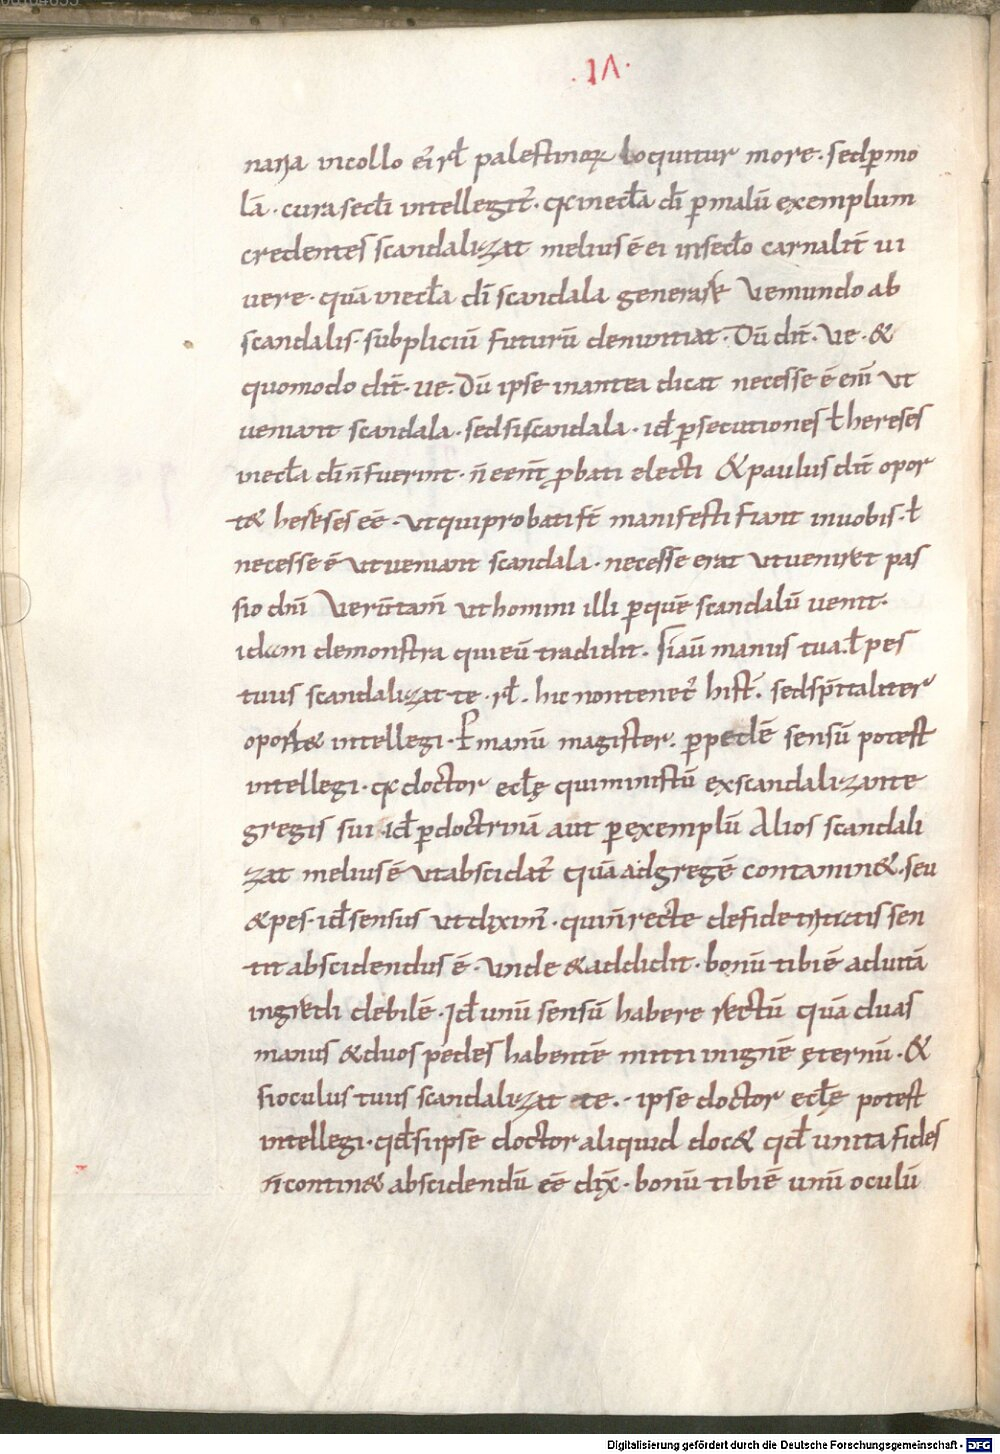 00104055
.IΛ.
naria incollo ei rł palestinorꝝ loquitur more · sedꝑmo
lā · cura sećli intellegit̃ · qꝛ inecl̃a di ꝑmalū exemplum
credentes scandalizat melius ē ei insećlo carnalit̃ ui
uere · quā inecl̃a di scandala generare Vemundo ab
scandalis · subpliciū futurū denuntiat · Dū dit̃ · ve · &
quomodo dit̃ · ue · Dū ipse inantea dicat necesse ē enī ut
ueniant scandala · sed si scandala · id ꝑsecutiones ł hereses
inecl̃a di ñ fuerint · ñ eent̃ ꝓbati electi & paulus dit̃ opor
t& hereses eē · ut qui probati st̃ manifesti fiant inuobis · ł
necesse ē ut ueniant scandala · necesse erat ut ueniret pas
sio dnī Verūtam̃ ut homini illi ꝑ quē scandalū uenit ·
idam demonstra qui eū tradidit · Si aū manus tua ł pes
tuus scandalizat te · rł · hic non tenet̃ hist̃ · sed spīritaliter
oport& intellegi · P manū magister · ꝑ pedē sensū potest
intellegi · qꝛ doctor ecl̃ę qui ministū exscandalizante
gregis sui · id ꝑ doctrinā aut ꝑ exemplū Alios scandali
zat melius ē ut abscidat̃ quā ad gregē contamin& · seu
& pes · id sensus ut diximꝰ · qui ñ recte de fide sen
tit abscidendus ē · unde & addidit · bonū tibi ē ad uitā
ingredi debilē · Id unū sensū habere rectū quā duas
manus & duos pedes habentē mitti in ignē ęternū · &
si oculus tuus scandalizat te · ipse doctor ecl̃ę potest
intellegi · qđ si ipse doctor aliquid doc& qđ unita fides
ñ contin& abscidendū eē dix̃ · bonū tibi ē unū oculū
Digitalisierung gefördert durch die Deutsche Forschungsgemeinschaft - DFG